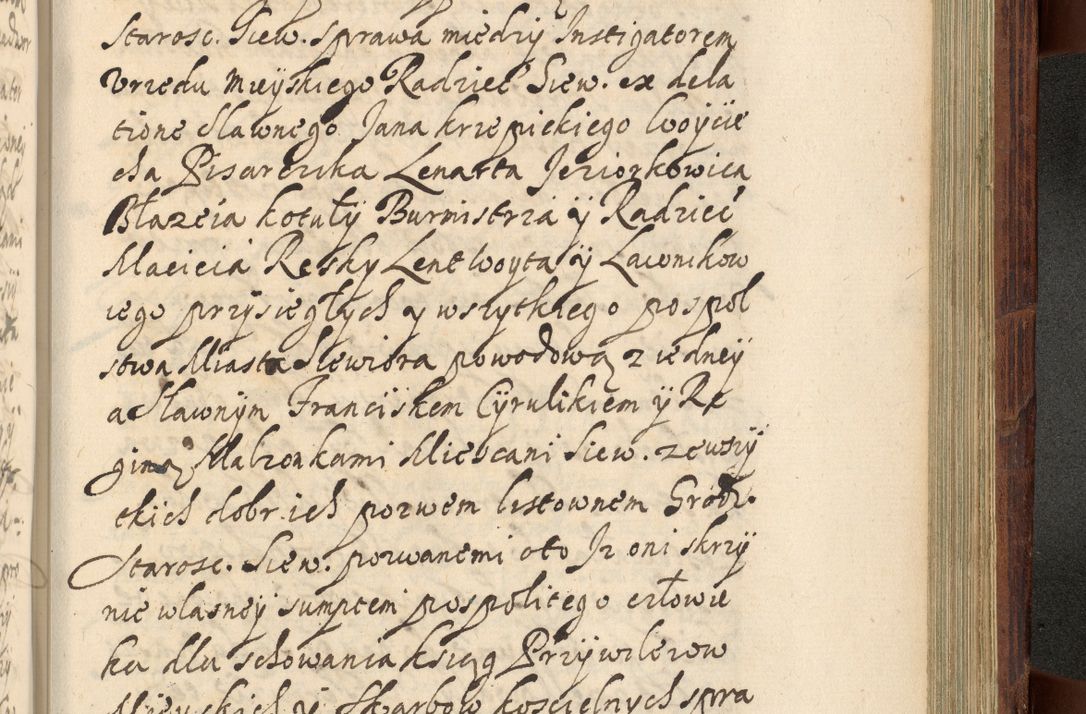 Starosc. Siew. sprawa między Instigatorem
Vrzedu Mieyskiego Radziec Siew. ex dela
tione Slawnego Jana krzepickiego Woycie
cha Pisarczika Lenarta Jeziorkowica
Błazeia kotuły Burmistrza y Radziec
Macieia Resky Lent Woyta y Lawnikow
iego przysięgłych y wszytkiego pospol
stwa Miasta Siewiora powodową z iedney
a Slawnym Franciskem Cyrulikiem y Re
giną Malzonkami Miescani Siew. z ewszy
tkich dobr ich pozwem listownem Grodz.
Starosc. Siew. pozwanemi oto Iz oni skrzy
nie wlasney sumptem pospolitego człowie
ka dlu schowania ksiąg Przywileiow
Mieyskich y Skarbow koscielnych spra